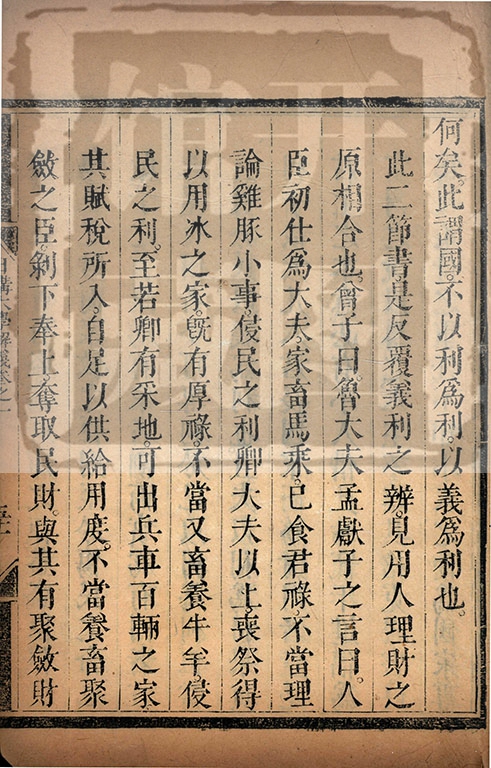 何矣。此謂國。不以利爲利。以義爲利也。
此二節書。是反覆義利之辨。見用人理財之
原相合也。曾子曰。魯大夫孟獻子之言曰。人
臣初仕爲大夫。家畜馬乘。已食君祿。不當理
論雞豚小事。侵民之利。卿大夫以上。喪祭得
以用冰之家。旣有厚祿。不當又畜養牛羊。侵
民之利。至若卿有采地。可出兵車百輛之家
其賦稅所入。自足以供給用度。不當養畜聚
斂之臣。剝下奉上。奪取民財。與其有聚斂財
日講 學解義卷之一